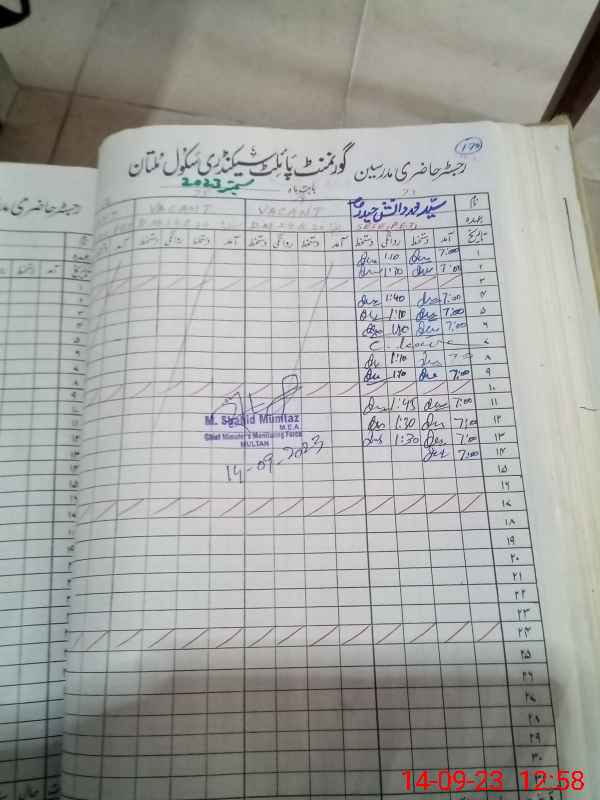 ۱۷۵
رجسٹر حاضری مدرسین گورنمنٹ پائلٹ سیکنڈری سکول ملتان
بابت ماہ ستمبر 2023
نام سیّد محمد دانش حیدر VACANT VACANT
عہدہ
تاریخ آمد دستخط روانگی دستخط آمد دستخط روانگی دستخط آمد دستخط روانگی دستخط
۱ 7:00 1:10
۲ 7:00 1:30
۳
۴ 7:00 1:40
۵ 7:00 1:10
۶ 7:00 1:10
۷ C. leave
۸ 7:00 1:10
۹ 7:00 1:10
۱۰
۱۱ 7:00 1:45
۱۲ 7:00 1:30
۱۳ 7:00 1:30
۱۴ 7:00
۱۵
۱۶
۱۷
۱۸
۱۹
۲۰
۲۱
۲۲
۲۳
۲۴
۲۵
۲۶
۲۷
۲۸
۲۹
۳۰
۳۱
M. Shahid Mumtaz
M.E.A.
Chief Minister's Monitoring Force
MULTAN
14-09-2023
رجسٹر حاضری
نام
عہدہ
تاریخ آمد دستخط
14-09-23 12:58